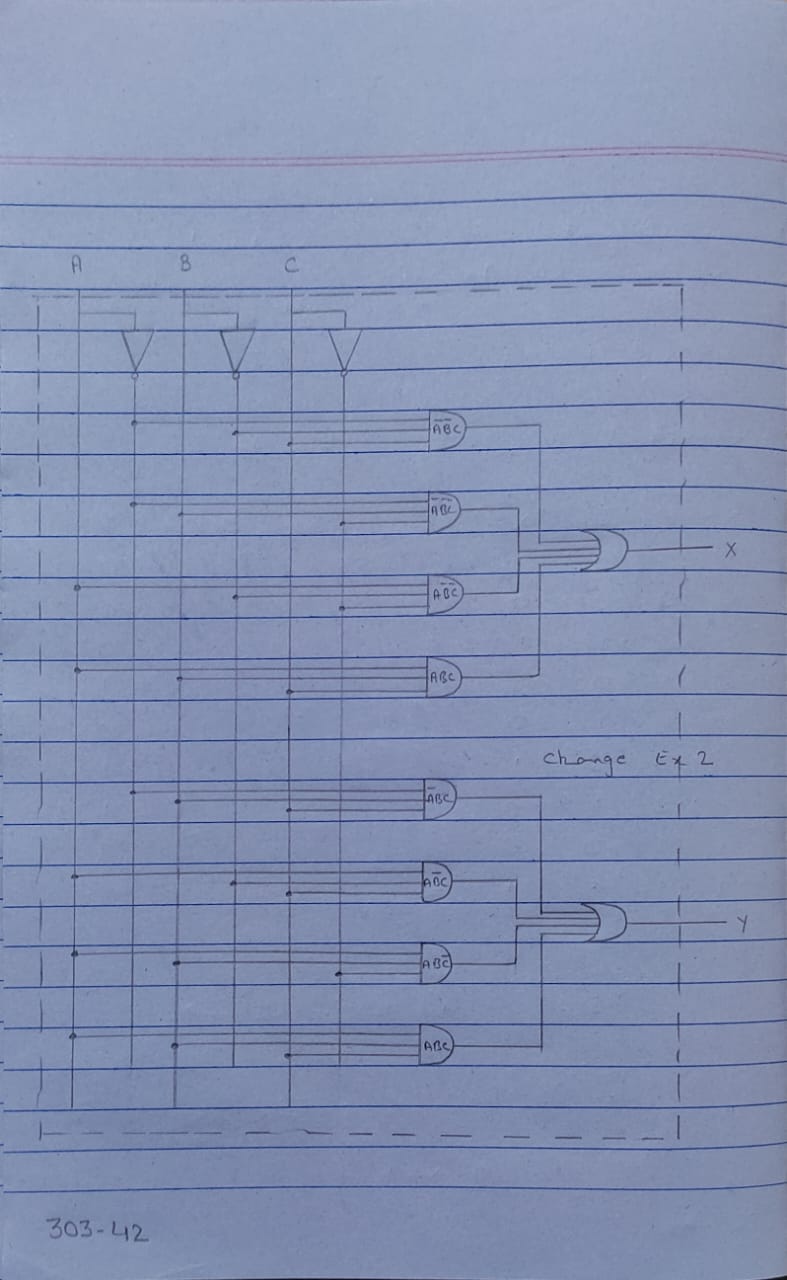 A B C
A̅B̅C
A̅BC̅
X
AB̅C̅
ABC
Change Ex 2
A̅BC
AB̅C
Y
ABC̅
ABC
303-42